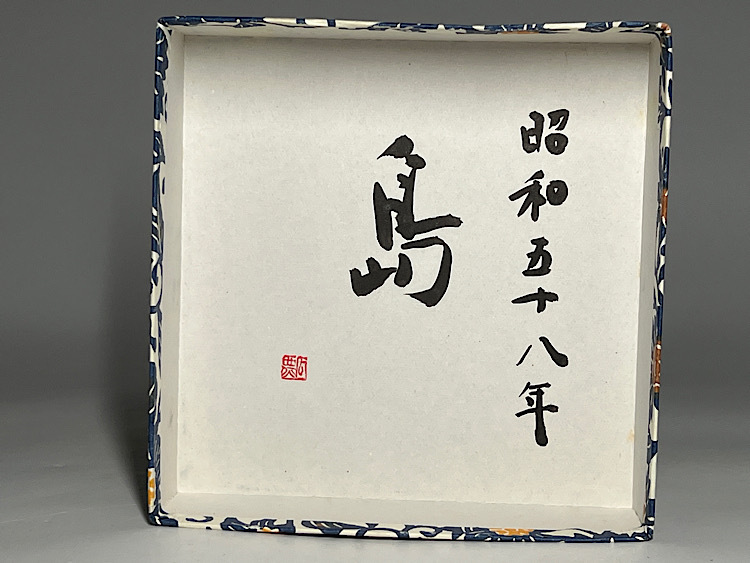 昭和五十八年
島